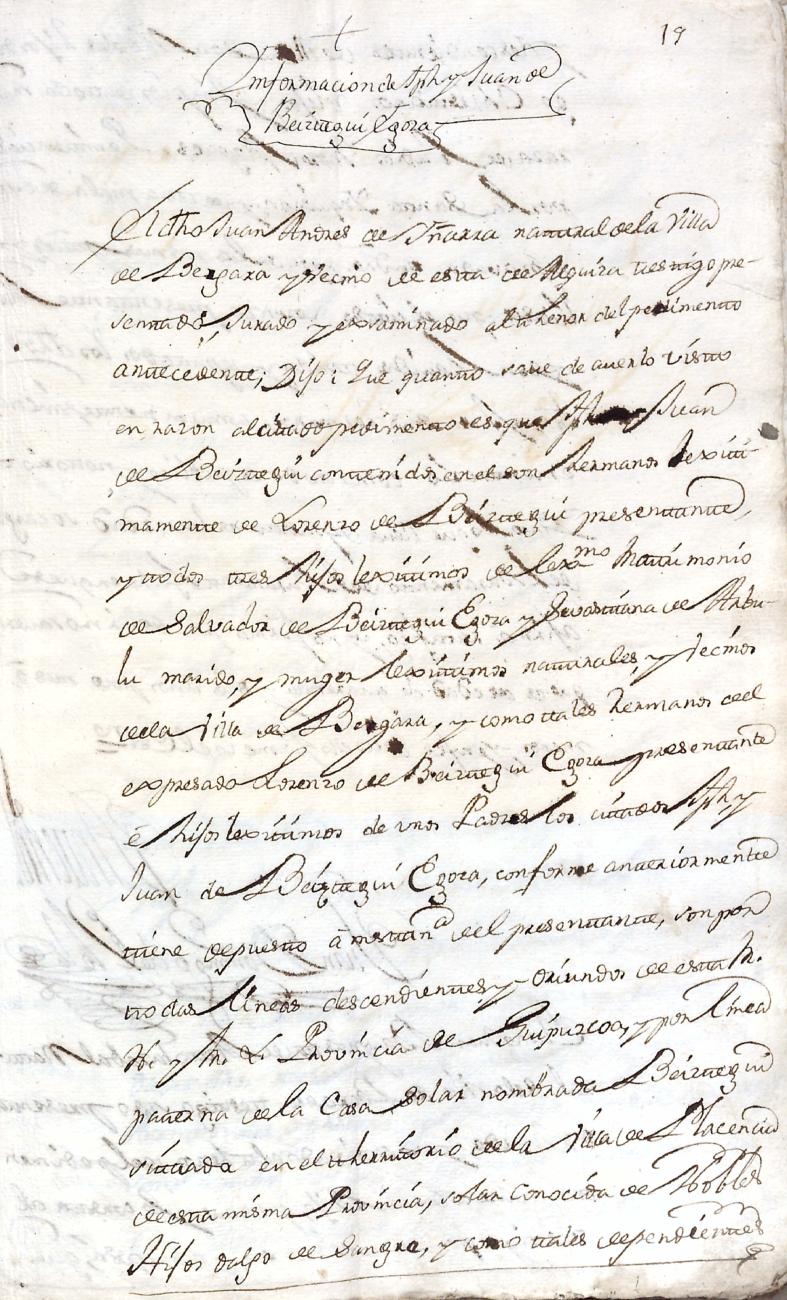 19
Informacion de Jph y Juan de
Beiztegui Egora
El dho Juan Andres de Yñarra natural de la Villa
de Bergara y Vecino de esta de Alquiza testigo pre-
sentado, Jurado y examinado al thenor del pedimento
antecedente; Dijo: Que quanto save de averlo visto
en razon al citado pedimento es que Jph y Juan
de Beiztegui contenidos en el son hermanos lexiti-
mamente de Lorenzo de Beiztegui presentante,
y todos tres hijos lexitimos de lexmo Matrimonio
de Salvador de Beiztegui Egora y Sevastiana de Arbu-
lu marido, y muger lexitimos naturales, y Vecinos
de la Villa de Bergara, y como tales hermanos de el
expresado Lorenzo de Beiztegui Egora presentante
é hijos lexitimos de unos Padres los citados Jph y
Juan de Beiztegui Egora, conforme anteriormente
tiene depuesto á instan.a de el presentante, son por
todas líneas descendientes y Oriundos de esta M.
N. y M. L. Provincia de Guipuzcoa, y por línea
paterna de la Casa Solar nombrada Beiztegui
sittuada en el thermitorio de la Villa de Placencia
de esta misma Provincia, solar conocida de Nobles
Hijos dalgo de Sangre, y como tales dependientes